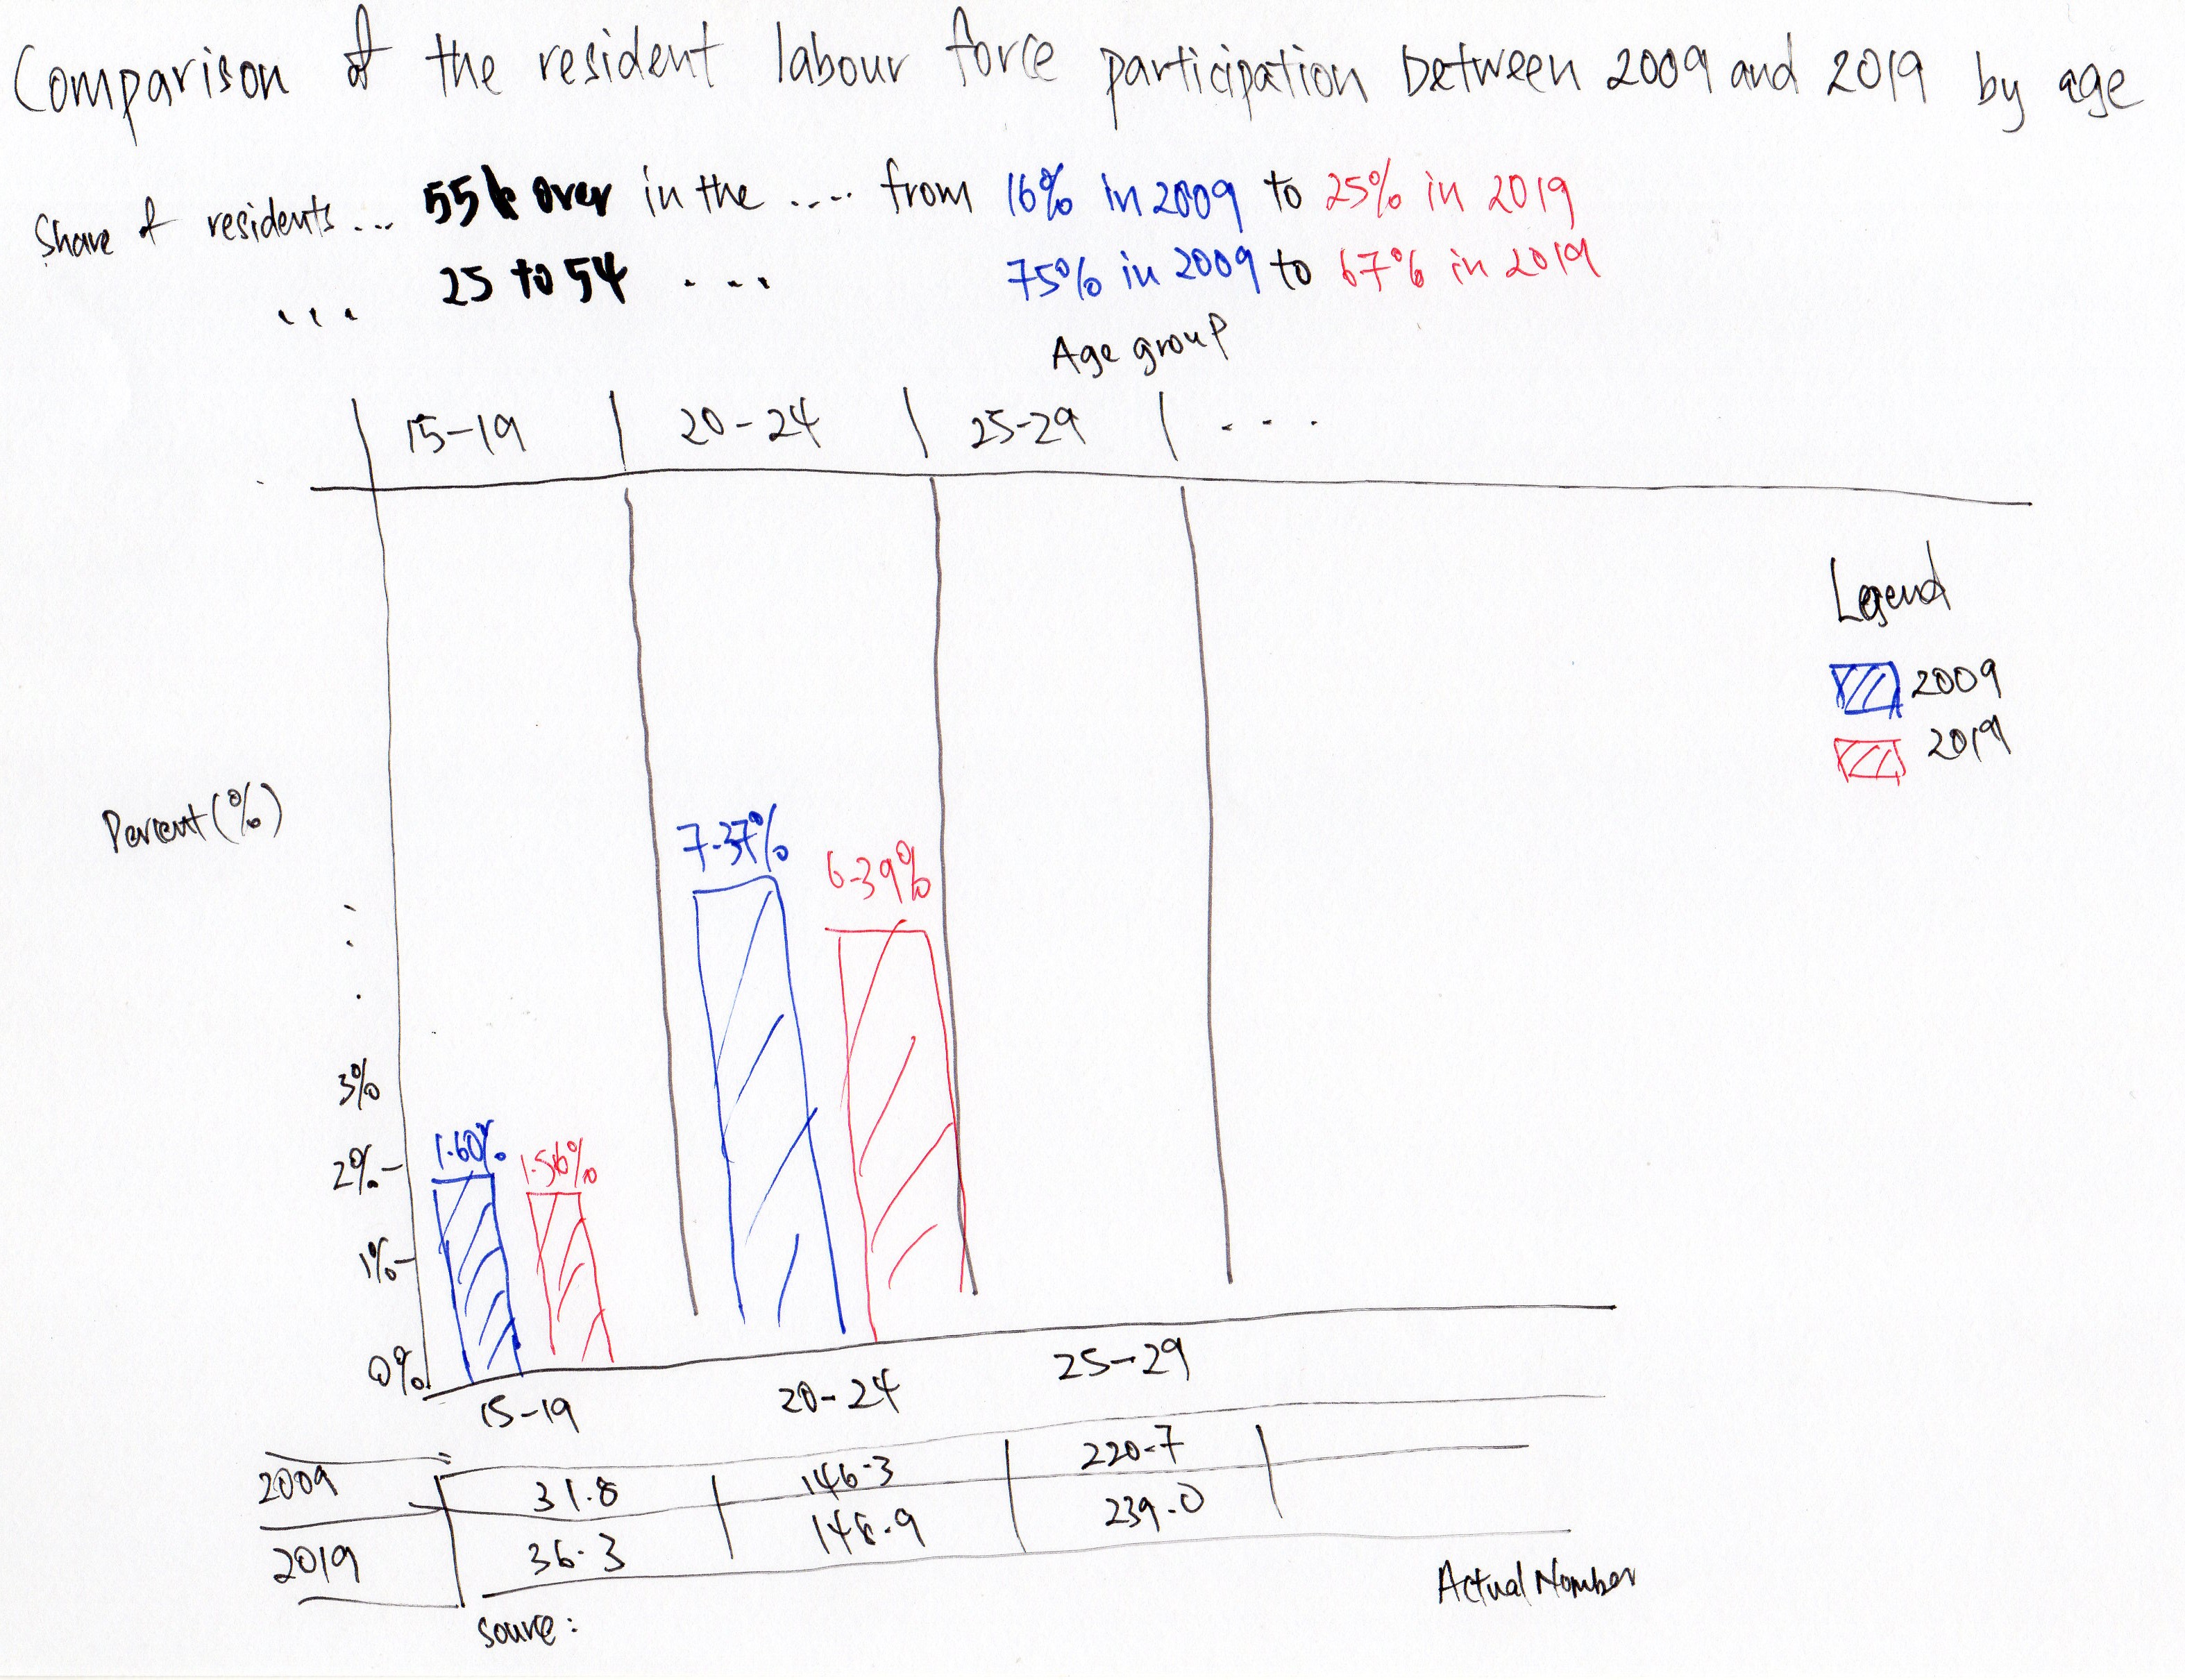 Comparison of the resident labour force participation between 2009 and 2019 by age
Share of residents... 55 & over in the .... from 16% in 2009 to 25% in 2019
... 25 to 54 ... 75% in 2009 to 67% in 2019
Age group
15-19 20-24 25-29 ...
Legend
2009
2019
Percent (%)
7.37%
6.39%
3%
2%
1%
0%
1.60%
1.56%
15-19 20-24 25-29
2009 31.8 146.3 220.7
2019 36.3 148.9 239.0
Actual Number
source: